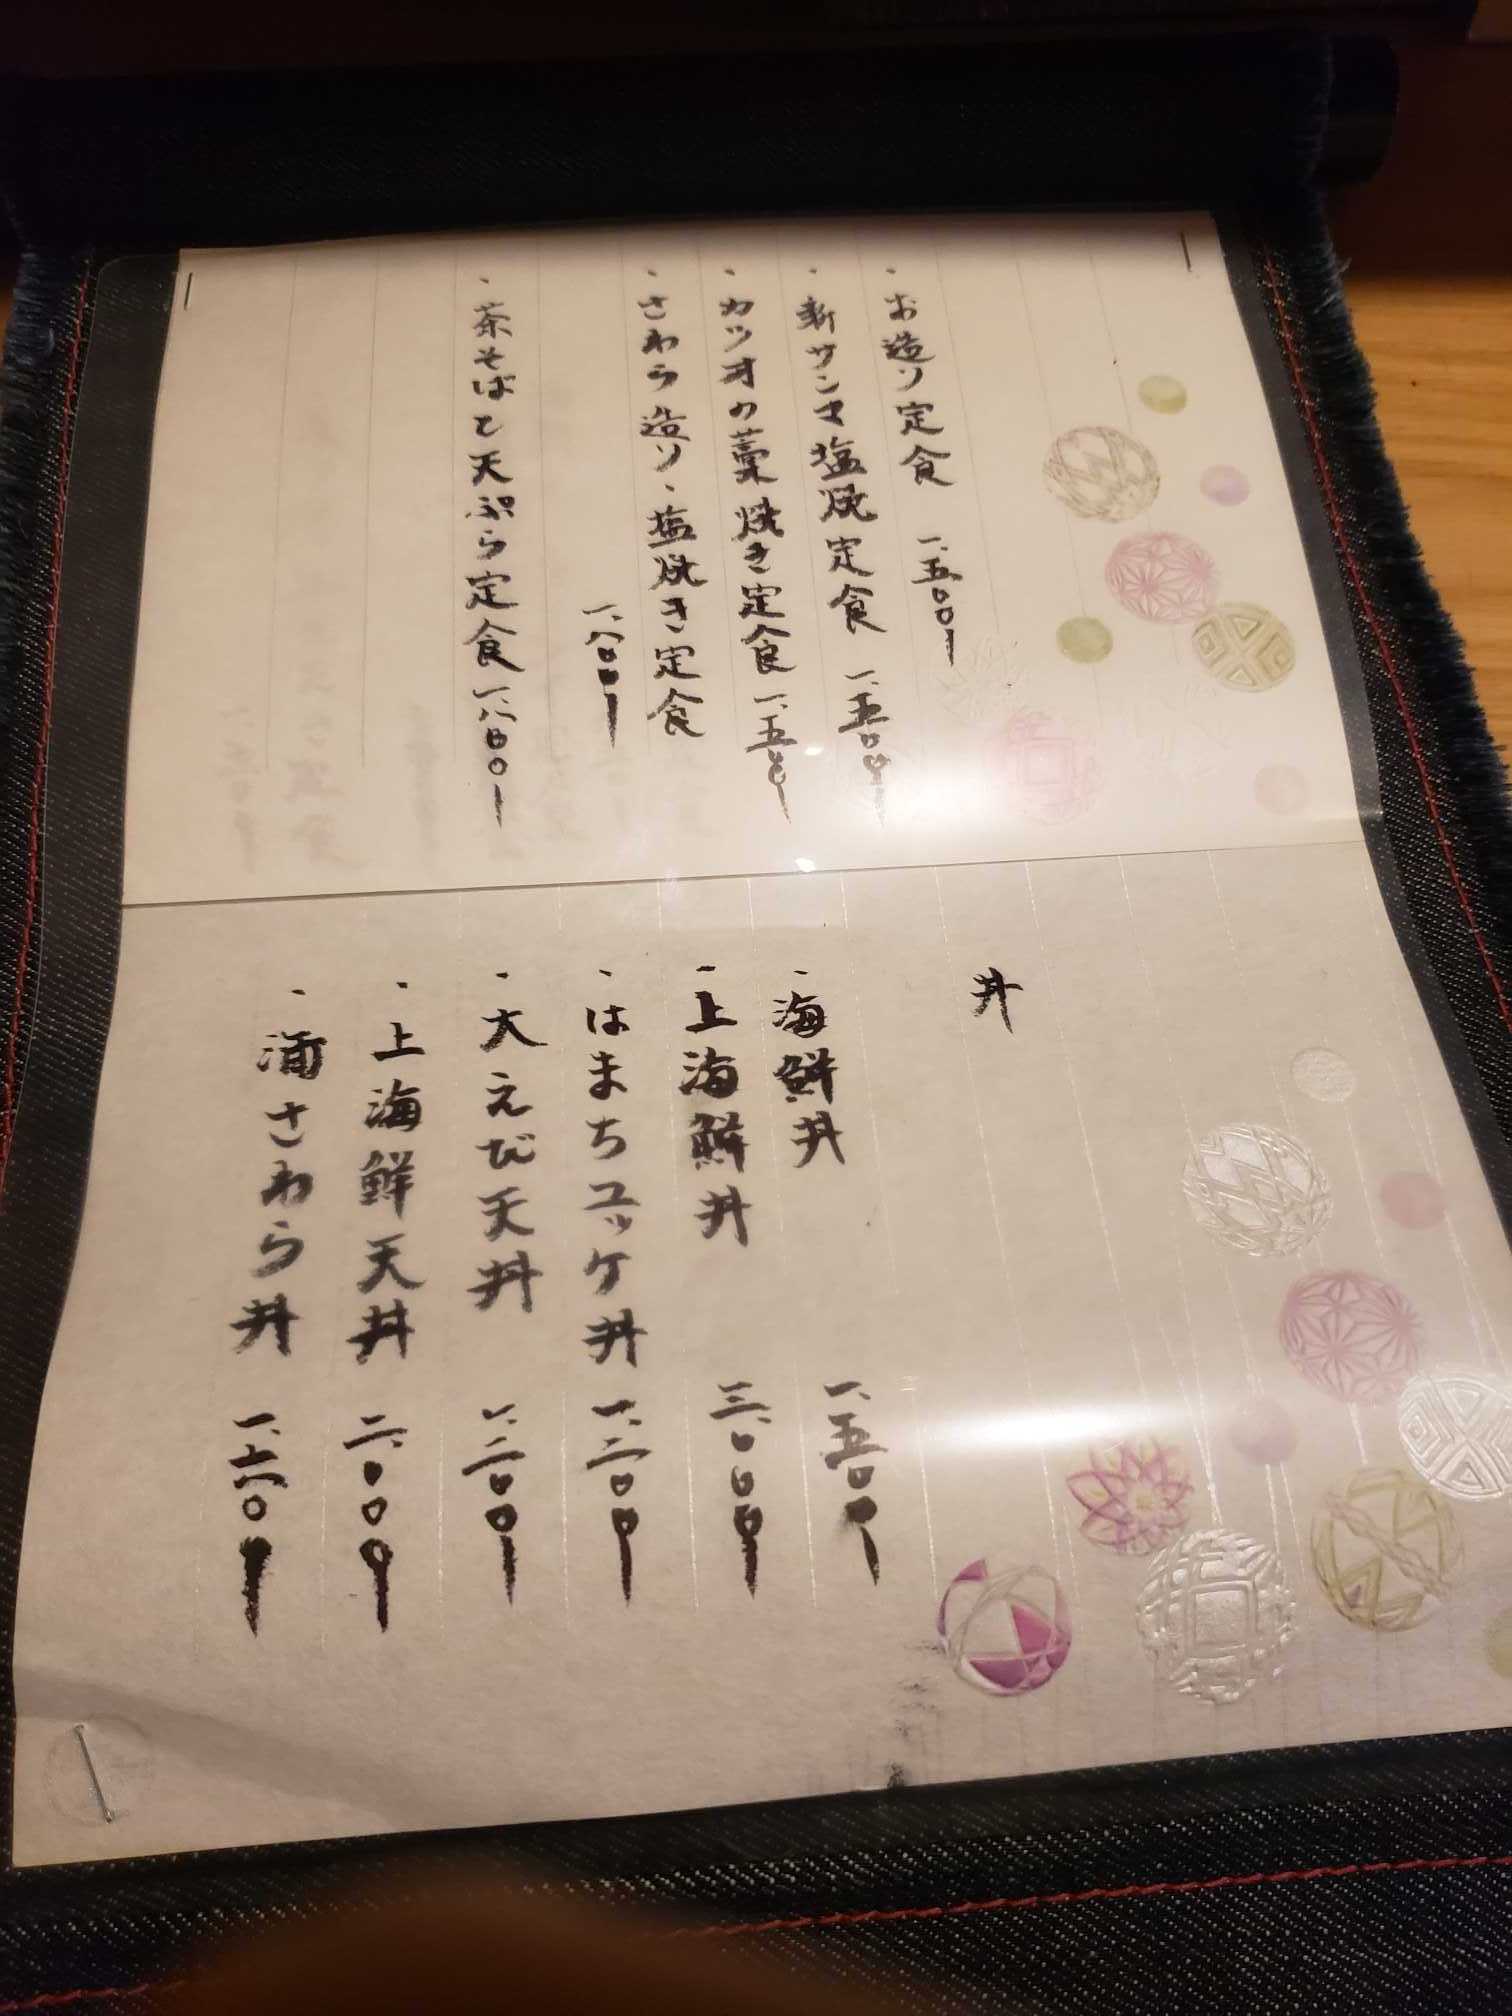 ・お造り定食 一、五〇〇ー
・新サンマ塩焼定食 一、五〇〇ー
・カツオの藁焼き定食 一、五〇〇ー
・さわら造り・塩焼き定食
一、八〇〇ー
・茶そばと天ぷら定食 一、八〇〇ー
丼
・海鮮丼 一、五〇〇ー
・上海鮮丼 三、〇〇〇ー
・はまちユッケ丼 一、二〇〇ー
・大えび天丼 一、二〇〇ー
・上海鮮天丼 二、〇〇〇ー
・漬さわら丼